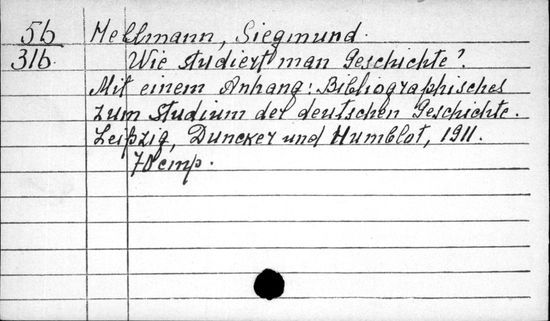 5b Hellmann, Siegmund.
31b. Wie studiert man Geschichte?
Mit einem Anhang: Bibliographisches
zum Studium der deutschen Geschichte.
Leipzig, Duncker und Humblot, 1911.
70 cmp.